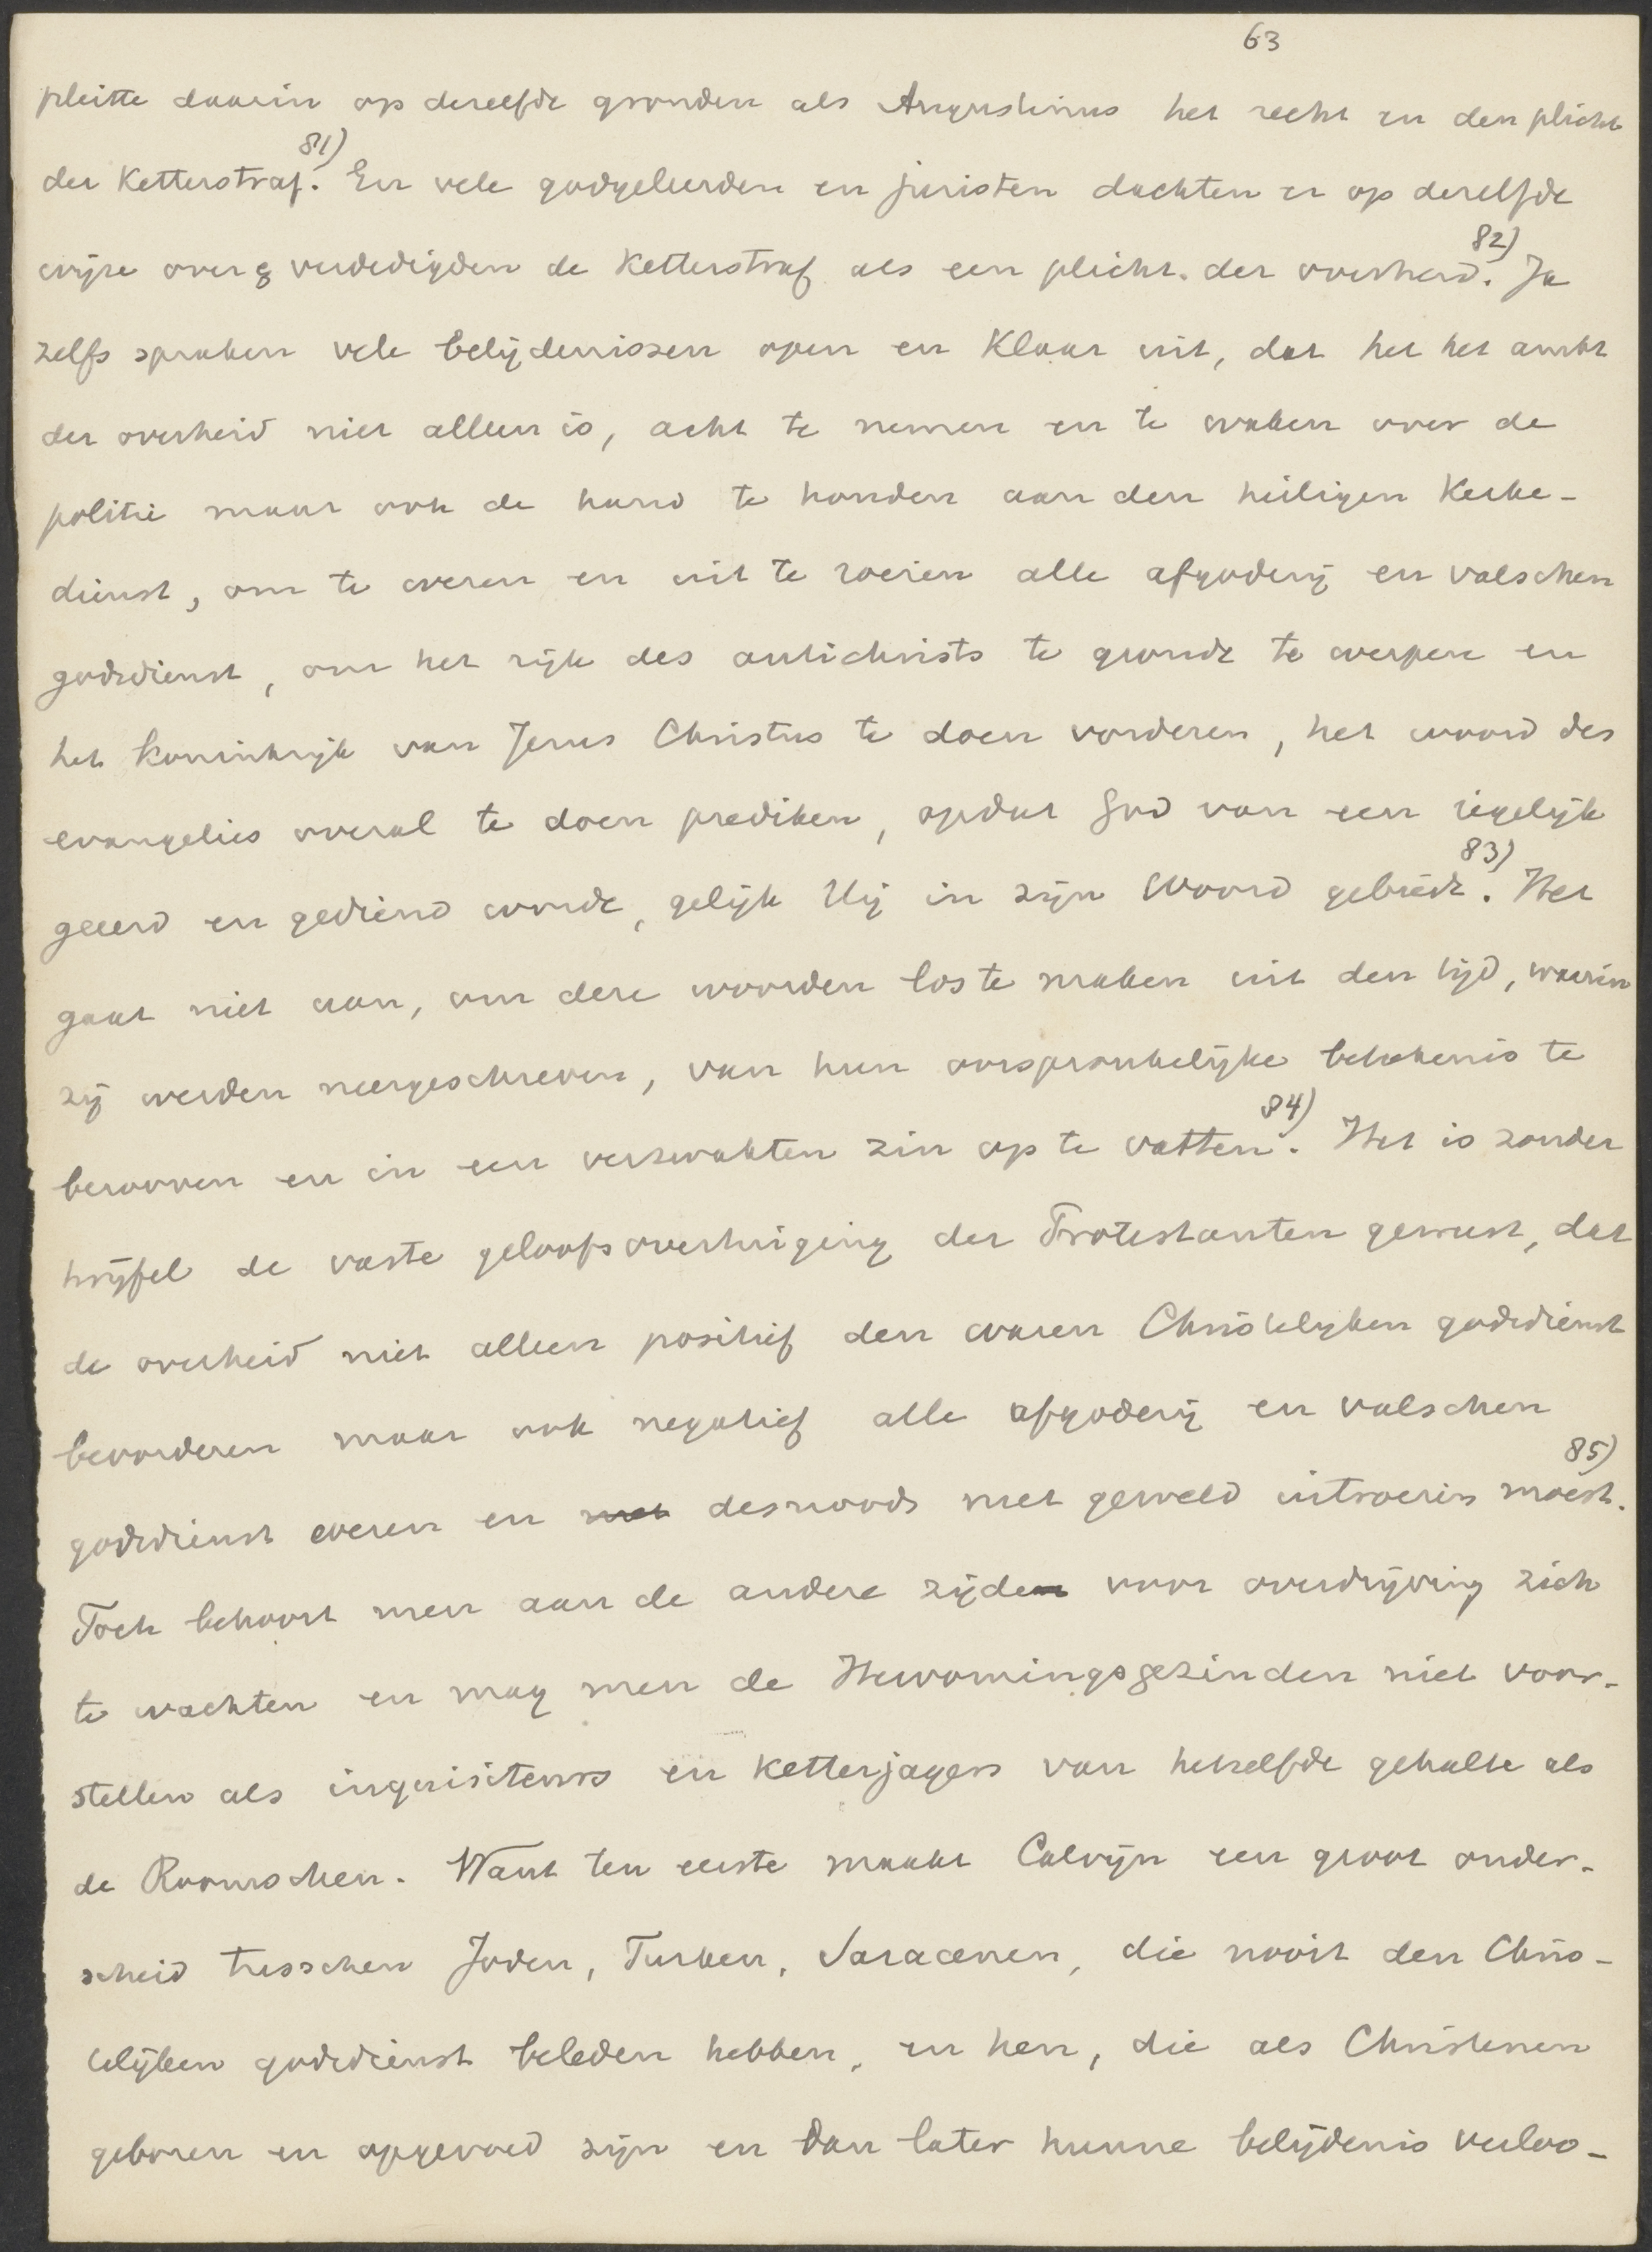 63
pleitte daarin op dezelfde gronden als Augustinus het recht en den plicht
der Ketterstraf. 81) En vele godgeleerden en juristen dachten er op dezelfde
wijze over & verdedigden de Ketterstraf als een plicht der overheid. 82) Ja
zelfs spraken vele belijdenissen open en Klaar uit, dat het het ambt
der overheid niet alleen is, acht te nemen en te waken over de
politie maar ook de hand te houden aan den heiligen Kerke-
dienst, om te weren en uit te roeien alle afgoderij en valschen
godsdienst, om het rijk des antichrists te gronde te werpen en
het Koninkrijk van Jezus Christus te doen vorderen, het woord des
evangelies overal te doen prediken, opdat God van een iegelijk
geëerd en gediend worde, gelijk Hij in zijn Woord gebiedt. 83) Het
gaat niet aan, om deze woorden los te maken uit den tijd, waarin
zij werden neergeschreven, van hun oorspronkelijke beteekenis te
berooven en in een verzwakten zin op te vatten. 84) Het is zonder
twijfel de vaste geloofsovertuiging der Protestanten geweest, dat
de overheid niet alleen positief den waren Christelijken godsdienst
bevorderen maar ook negatief alle afgoderij en valschen
godsdienst weren en met desnoods met geweld uitroeien moest. 85)
Toch behoort men aan de andere zijden voor overdrijving zich
te wachten en mag men de Hervormingsgezinden niet voor-
stellen als inquisiteurs en Ketterjagers van hetzelfde gehalte als
de Roomschen. Want ten eerste maakt Calvijn een groot onder-
scheid tusschen Joden, Turken, Saracenen, die nooit den Chris-
telijken godsdienst beleden hebben, en hen, die als Christenen
geboren en opgevoed zijn en dan later hunne belijdenis verloo-